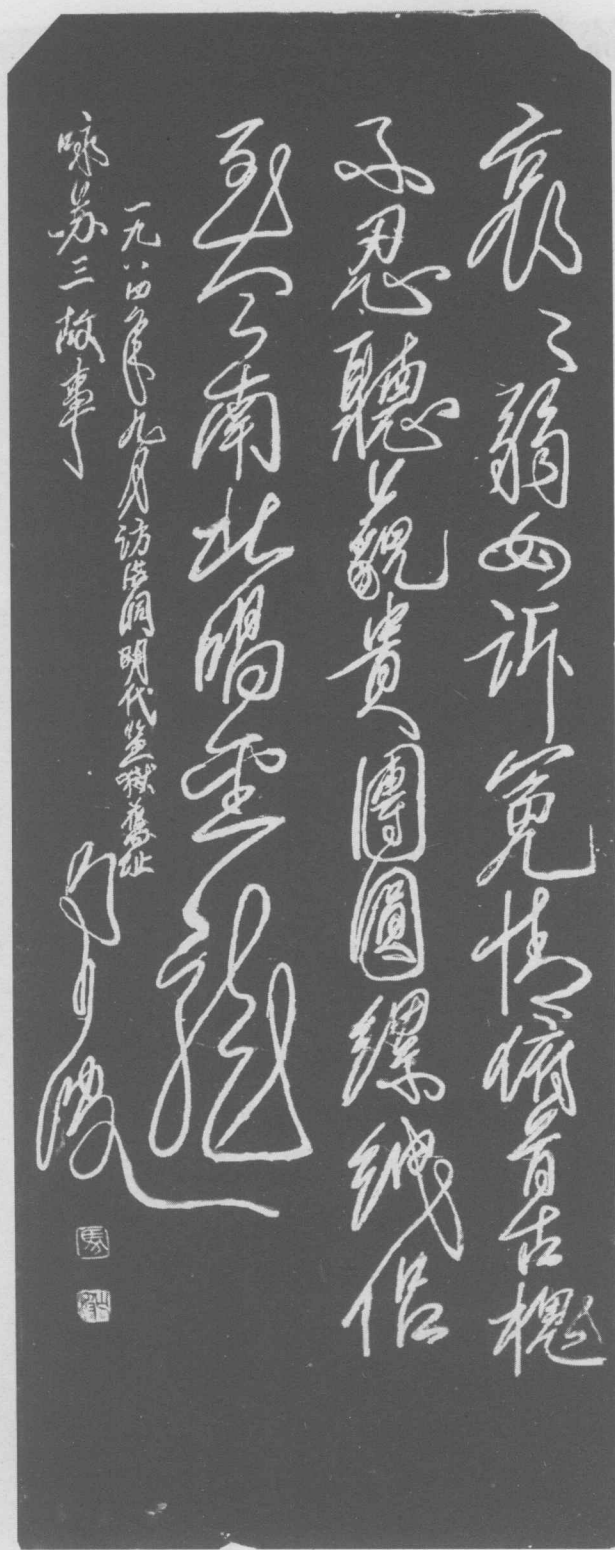 哀々弱女訴冤情俯首古槐
不忍聽藐貴團圓縲絏侣
至今南北唱金龍
一九八四年九月访洪洞明代監獄舊址
咏苏三故事
馬